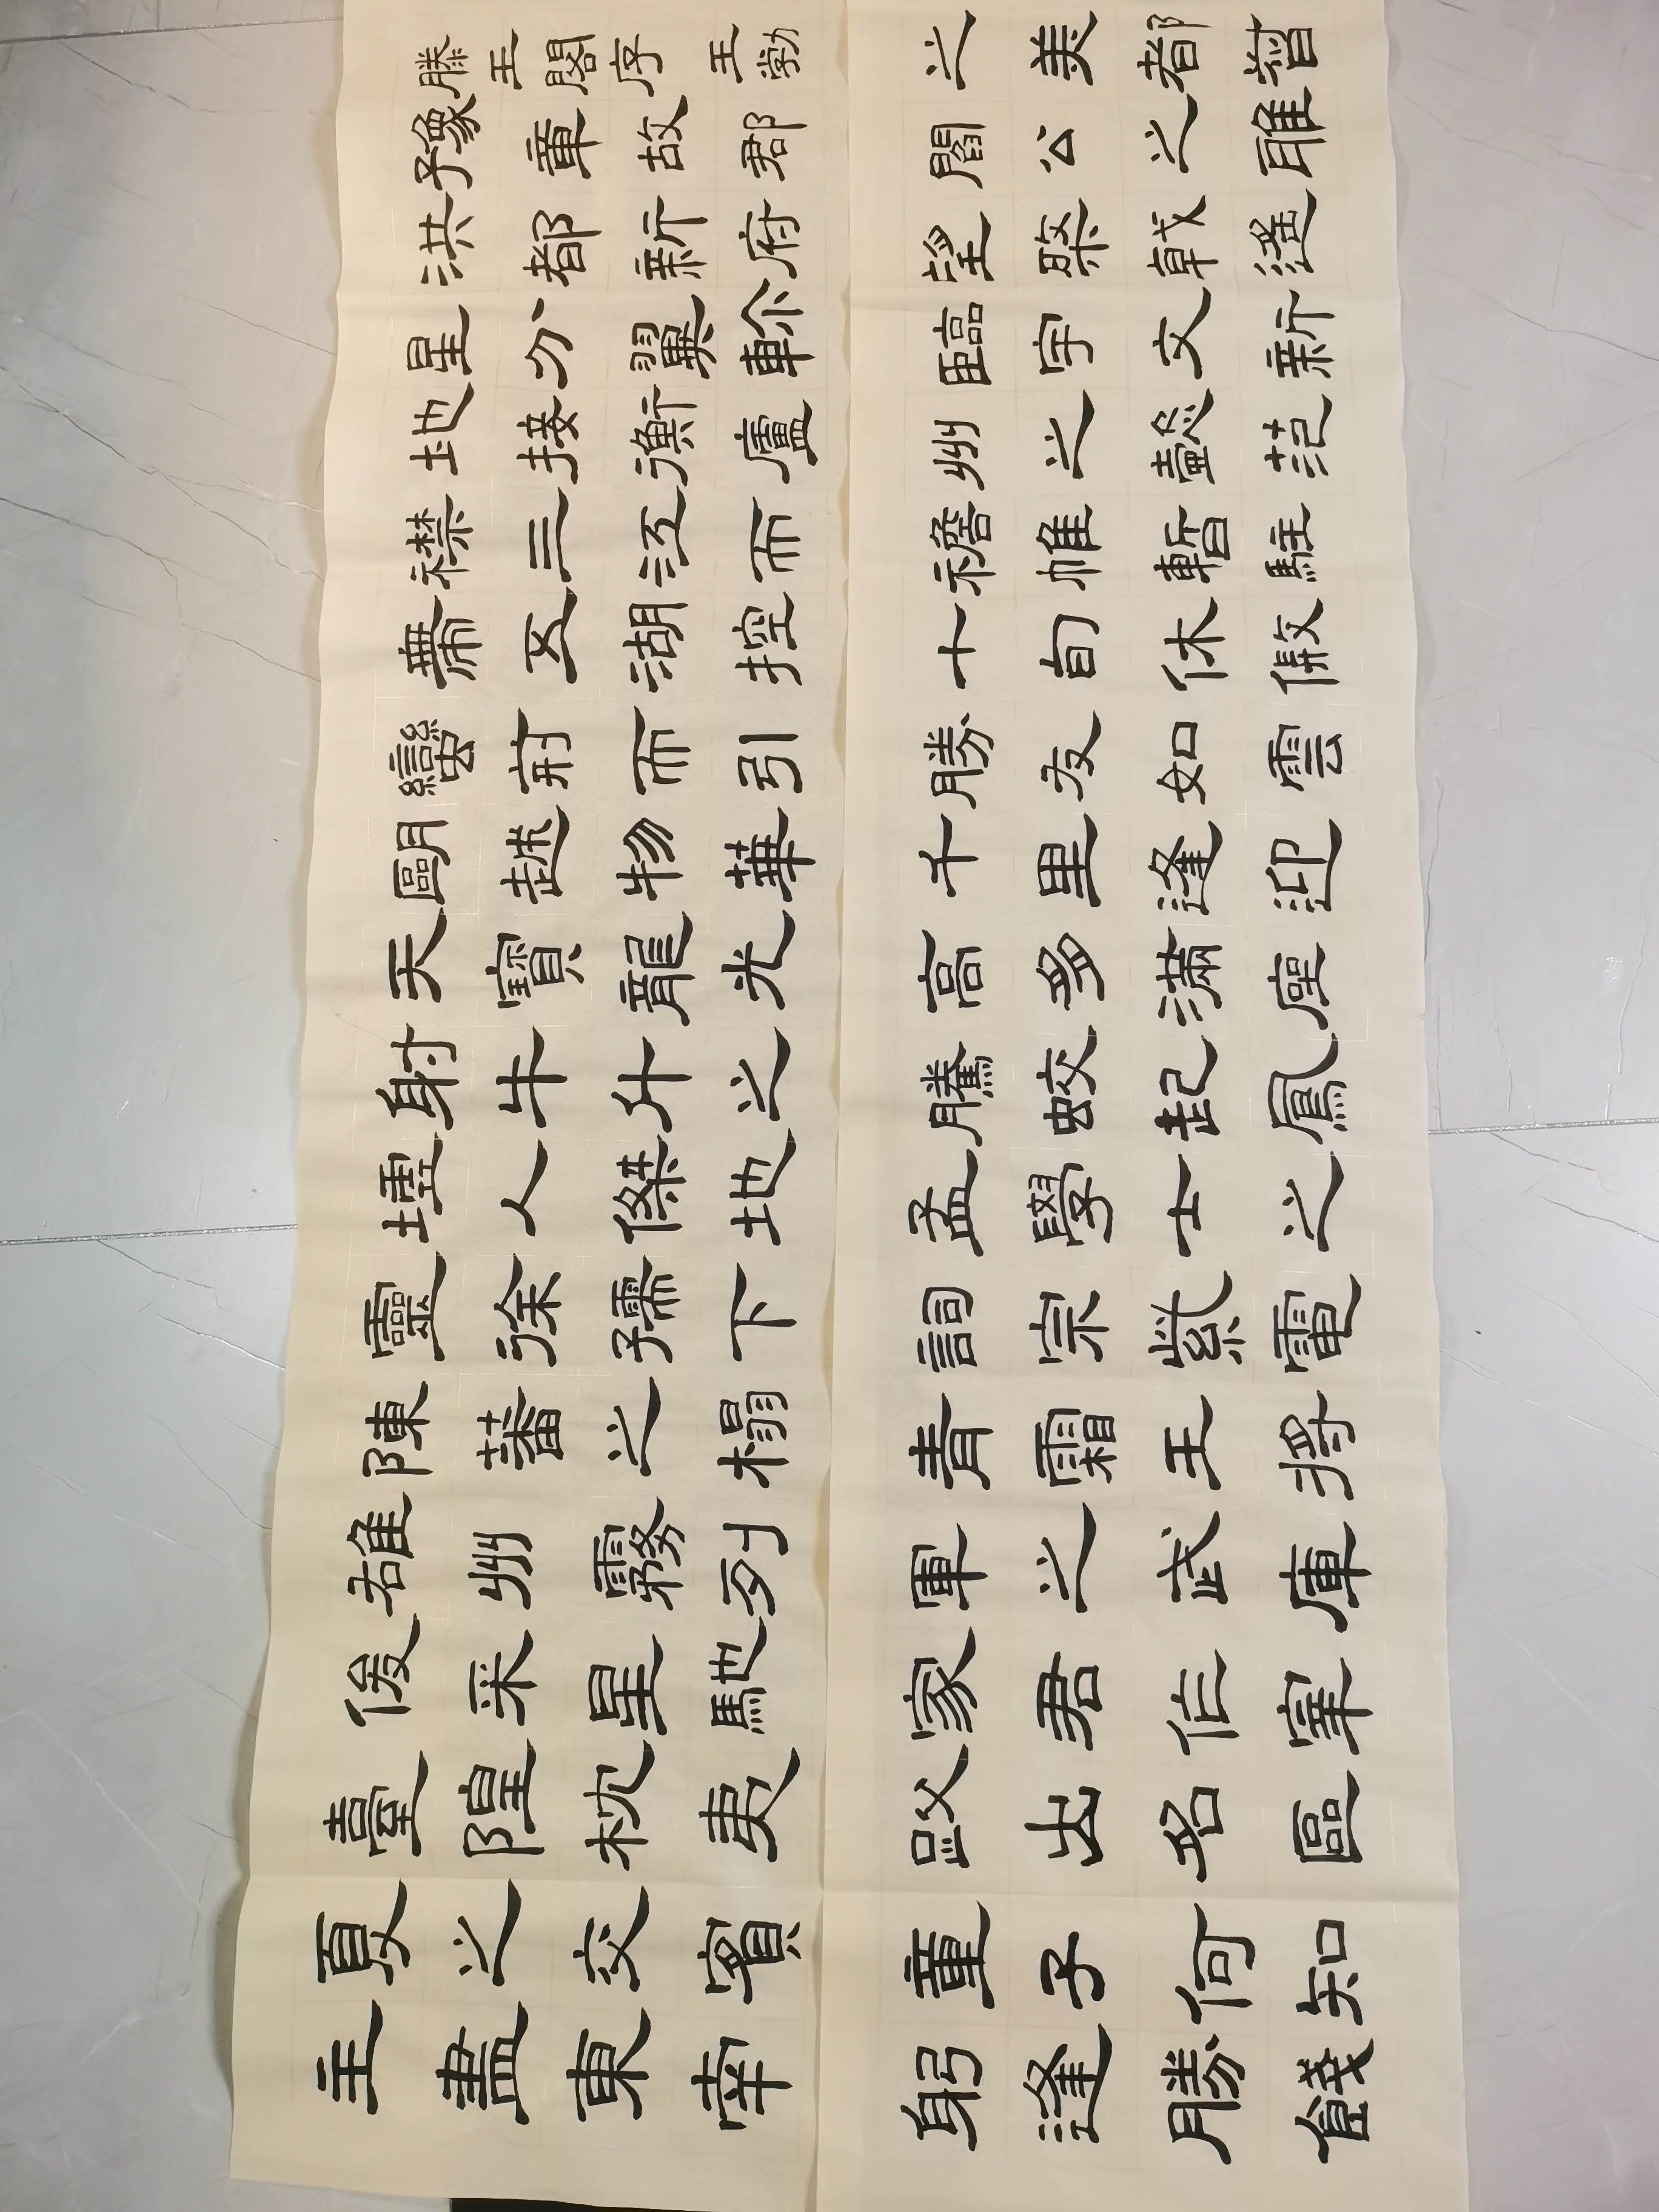 滕王閣序 王勃
豫章故郡
洪都新府
星分翼軫
地接衡廬
襟三江而
帶五湖控
蠻荊而引
甌越物華
天寶龍光
射牛斗之
墟人傑地
靈徐孺下
陳蕃之榻
雄州霧列
俊采星馳
臺隍枕夷
夏之交賓
主盡東南
之美都督
閻公之雅
望棨戟遙
臨宇文新
州之懿範
襜帷暫駐
十旬休假
勝友如雲
千里逢迎
高朋滿座
騰蛟起鳳
孟學士之
詞宗紫電
青霜王將
軍之武庫
家君作宰
路出名區
童子何知
躬逢勝餞